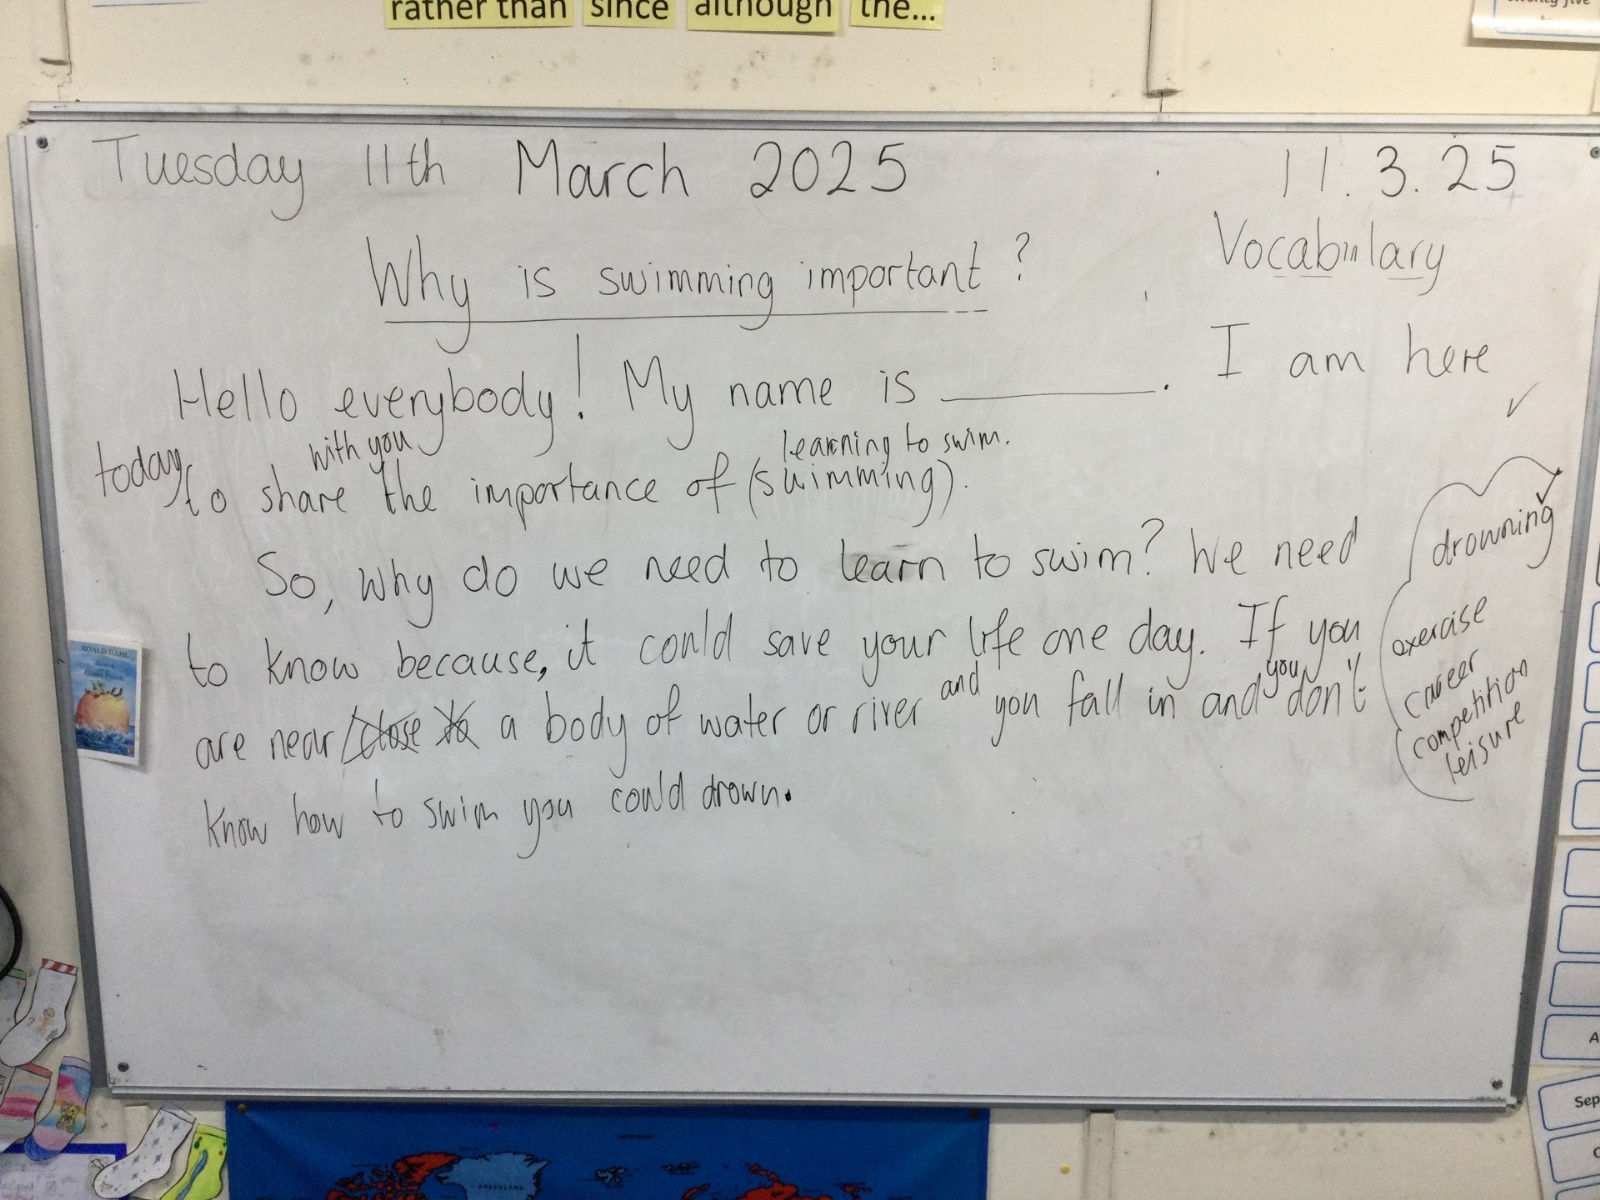 rather than since although the...
Tuesday 11th March 2025 11.3.25
Why is swimming important?
Vocabulary
Hello everybody! My name is ________. I am here
with you learning to swim.
today, to share the importance of (swimming).
So, why do we need to learn to swim? We need
to know because, it could save your life one day. If you
and you
are near close to a body of water or river you fall in and don't
know how to swim you could drown.
drowning
exercise
career
competition
leisure
ROALD DAHL
GREENLAND
Sep